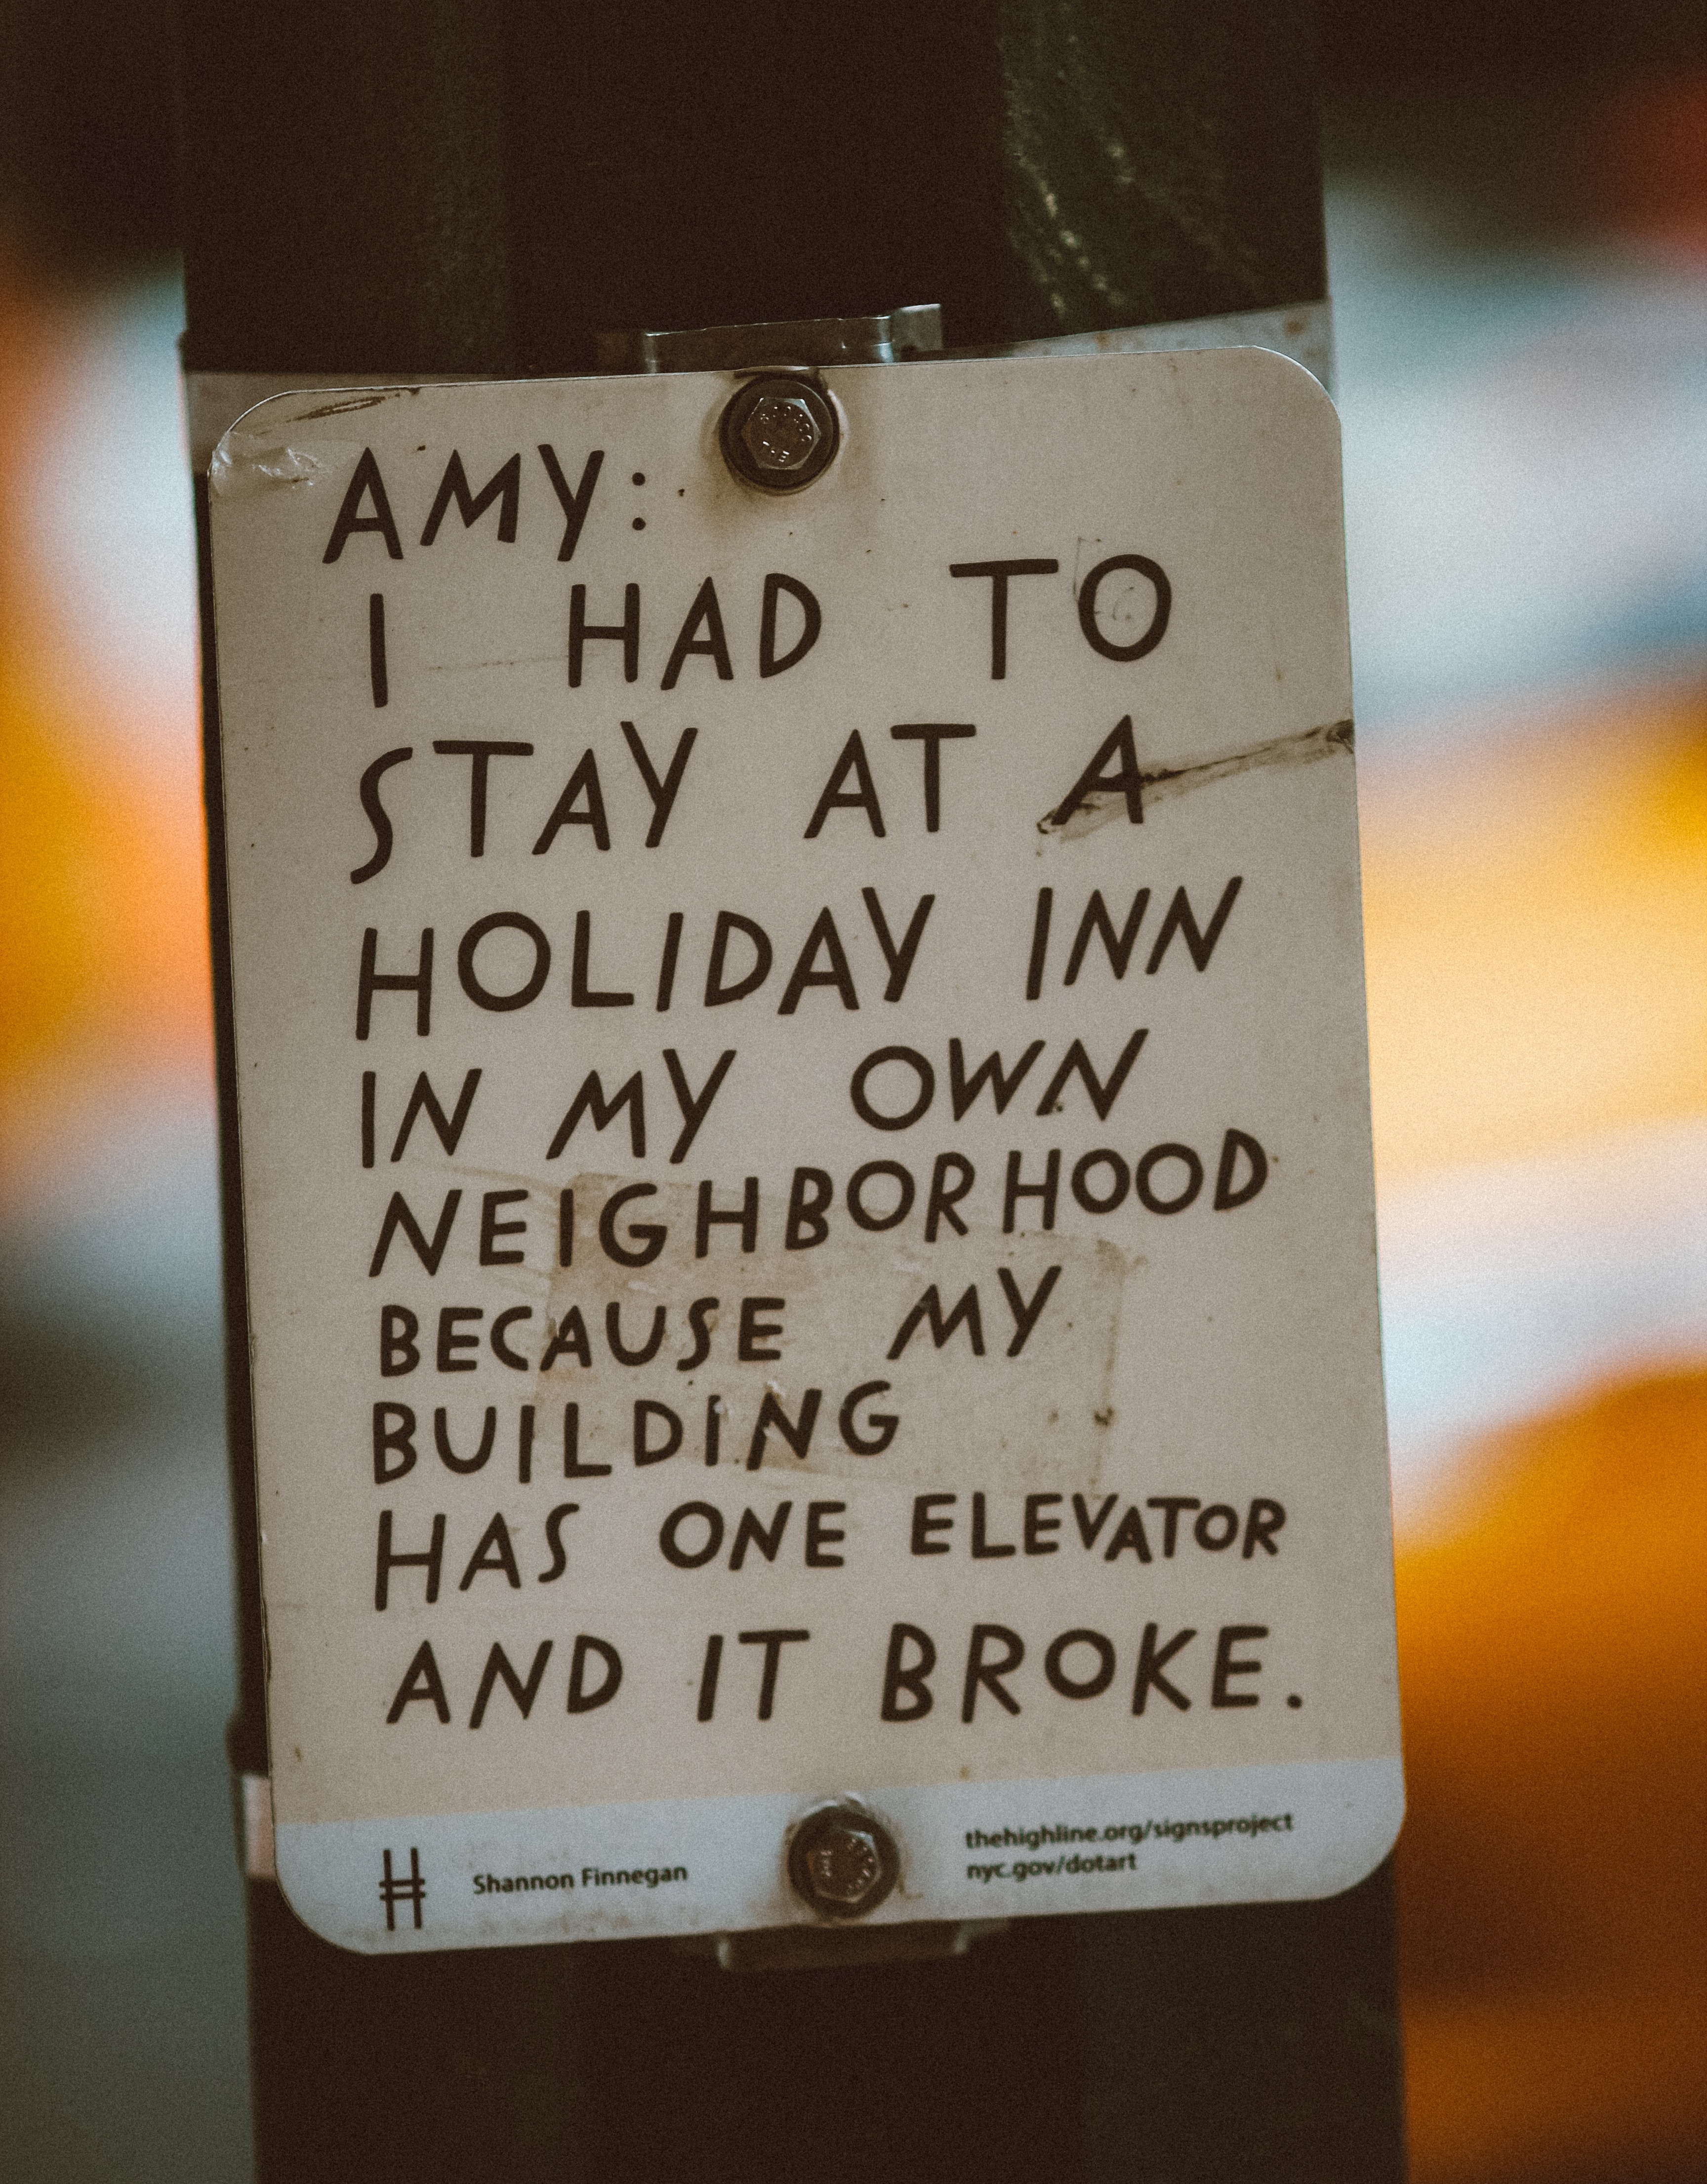 AMY:
I HAD TO
STAY AT A
HOLIDAY INN
IN MY OWN
NEIGHBORHOOD
BECAUSE MY
BUILDING
HAS ONE ELEVATOR
AND IT BROKE.
Shannon Finnegan
thehighline.org/signsproject
nyc.gov/dotart